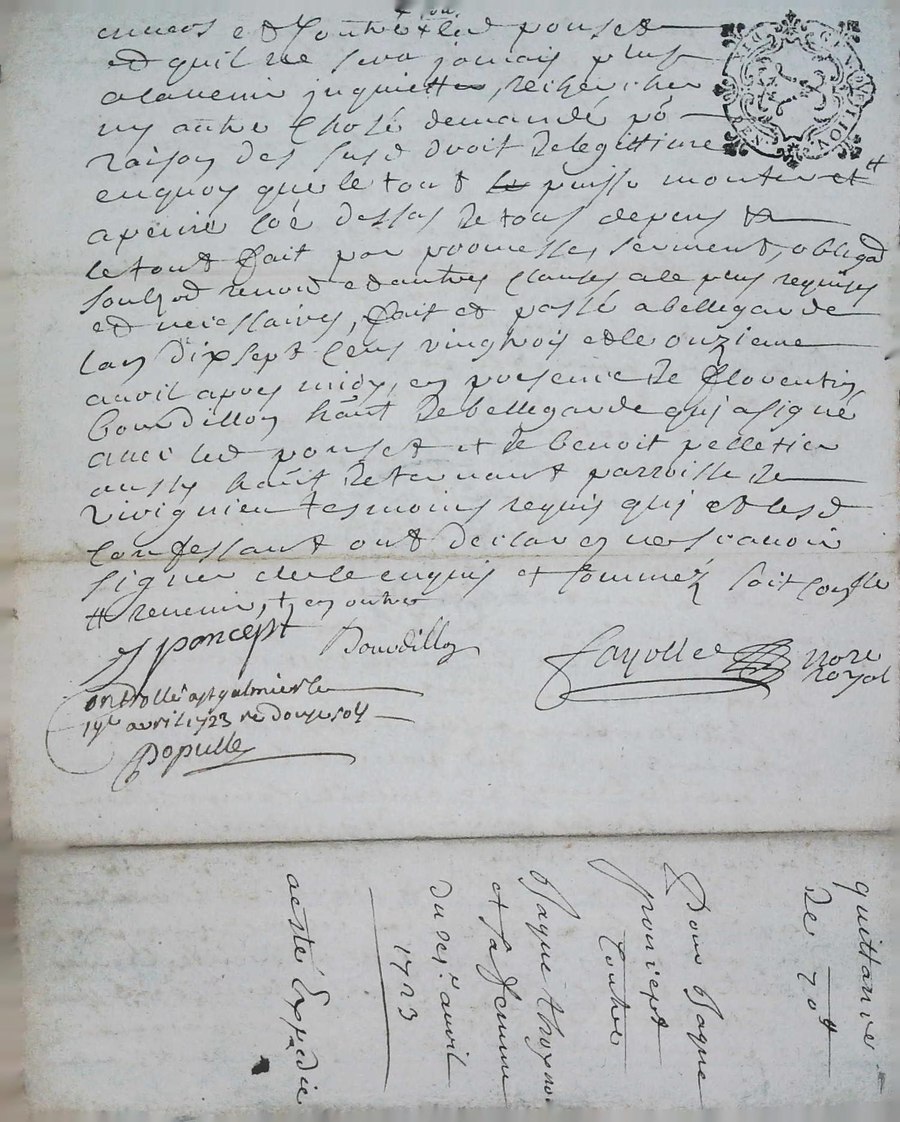 envers et contre led ponset
et quil ne sera jamais plus
a lavenir inquietter, rechercher
ny autre chose demandé po
raison des susd droit de legittime
enquoy que le tout le puisse monter et ♯
a peine de tous depens &
le tout fait par promesses serment, obligaõn
renond et autres clauses a ce plus requises
et neicessaires, fait et passé a bellegarde
lan dix sept cens vingtrois et le onzieme
avril apres midy, en presence de florentin
bourdillon habt de bellegarde qui a signé
avec led ponset et de benoit pelletier
aussy habt de parroisse de
rivignieu tesmoins requis qui et lesd
confessant ont declarez ne scavoir
signer de ce enquis et sommez soit
♯ revenir, + en outre
J poncept
Bourdillon
Fayolle nore
royal
Controllé a st galmier le
14e avril 1723 re douze sols
Populle
GENERALITE DE LION
quittance
de 70#
Pour Jaque
poncept
contre
Jaque
et sa femme
du avril
1723
acte Expedié